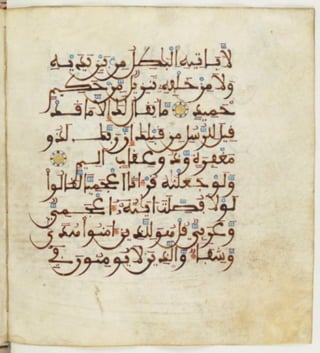 لا ياتيه البطل من بين يديه
ولا من خلفه تنزيل من حكيم
حميد ما يقال لك الا ما قد
قيل للرسل من قبلك ان ربك لذو
مغفرة وذو عقاب اليم
ولو جعلنه قرءانا اعجميا لقالوا
لولا فصلت ءايته ءاعجمي
وعربي قل هو للذين ءامنوا هدى
وشفاء والذين لا يومنون في